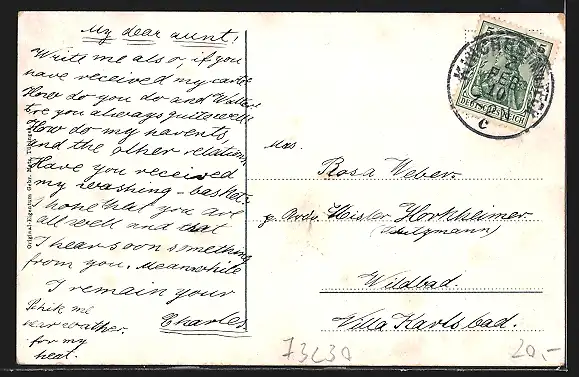 My dear aunt!
Write me also, if you
have received my carte
How do you do and
Are you always quite well?
How do my parents,
and the other relations,
Have you received
my washing-basket,
I hope that you are
all well and that
I hear soon something
from you. Meanwhile
I remain your
Charles.
Schik me
for my
heat.
Mrs.
Rosa Weber.
Horkheimer
Wildbad.
Villa Karlsbad.
5 5
DEUTSCHES REICH
FEB
10
C
73630
20,-